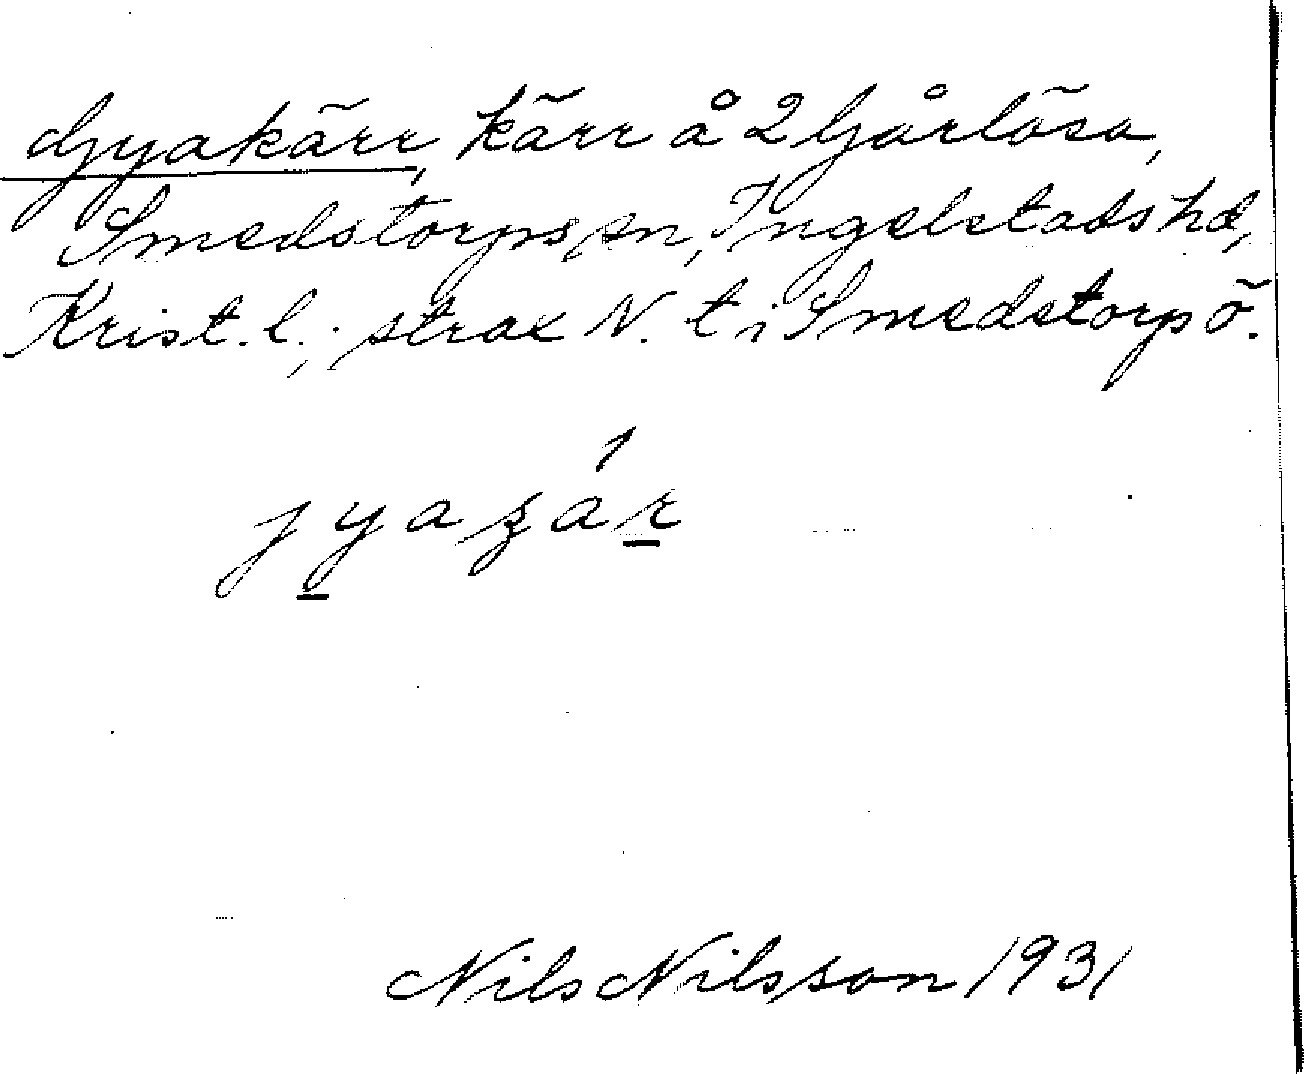 Gyakärr, kärr å 2 Gårlösa,
Smedstorps sn, Ingelstads hd,
Krist. l.; strax N. t. i Smedstorp ö.
Nils Nilsson 1931